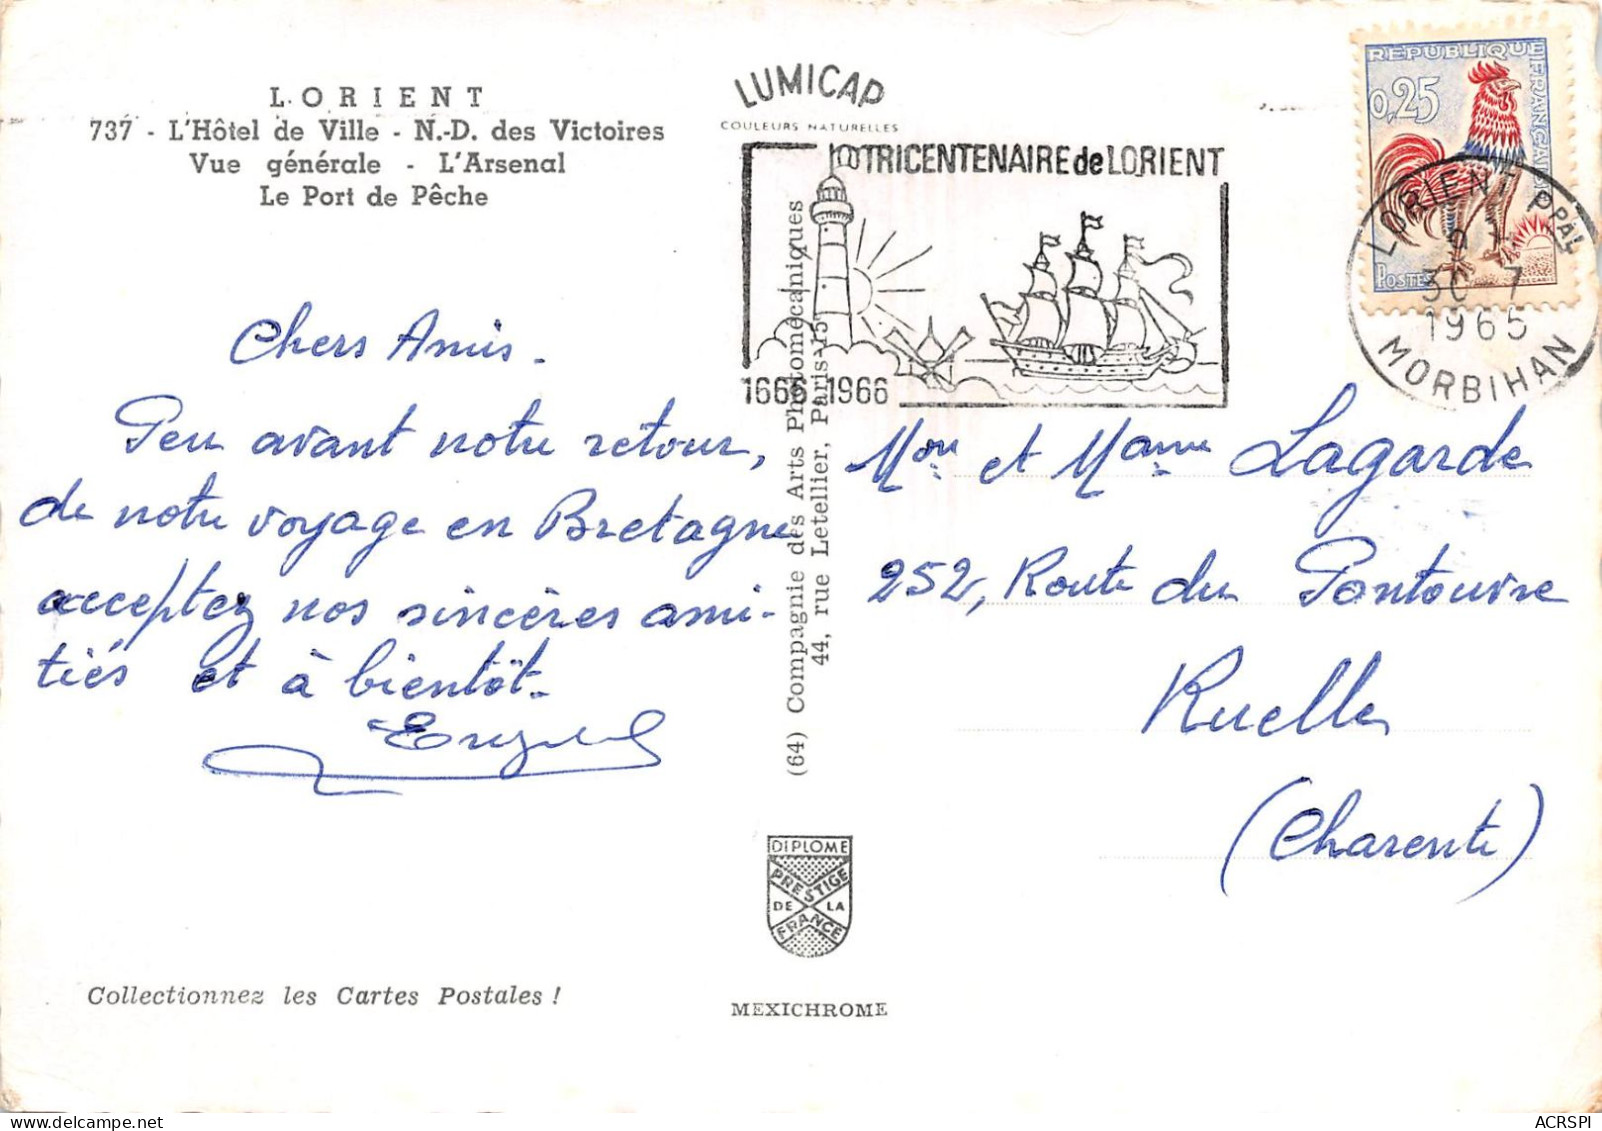 LORIENT
737 - L'Hôtel de Ville - N.-D. des Victoires
Vue générale - L'Arsenal
Le Port de Pêche
Chers Amis.
Peu avant notre retour,
de notre voyage en Bretagne
acceptez nos sincères ami-
tiés et à bientôt.
Collectionnez les Cartes Postales !
LUMICAP
COULEURS NATURELLES
TRICENTENAIRE de LORIENT
1666 1966
(64) Compagnie des Arts Photomécaniques
44, rue Letellier, Paris-15
DIPLOME
PRESTIGE
DE LA
FRANCE
MEXICHROME
REPUBLIQUE FRANÇAISE
0,25
POSTES
LORIENT PPAL
30 - 7
1965
MORBIHAN
Mon et Mame Lagarde
252, Route du Pontouvre
Ruelle
(Charente)
ACRSPI